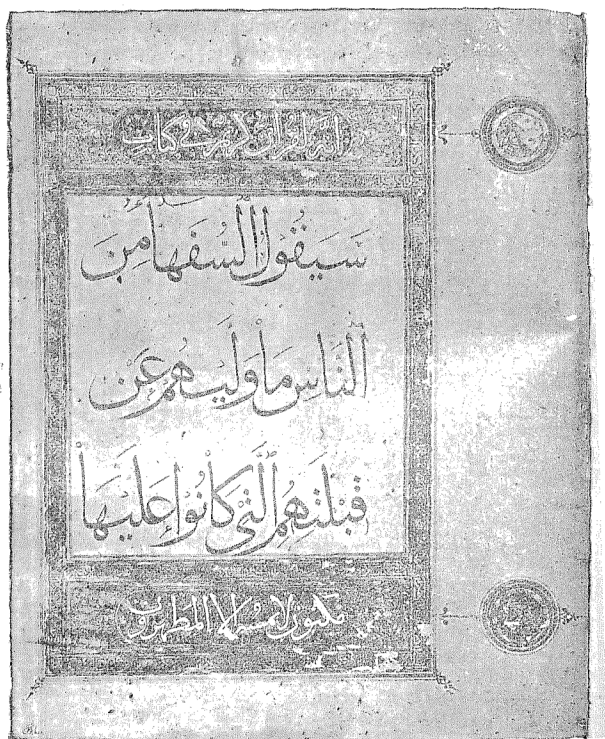 انه لقرآن كريم في كتاب
سَيَقُولُ ٱلسُّفَهَآءُ مِنَ
ٱلنَّاسِ مَا وَلَّيٰهُمْ عَن
قِبْلَتِهِمُ ٱلَّتِى كَانُوا عَلَيْهَا
مكنون لا يمسه الا المطهرون